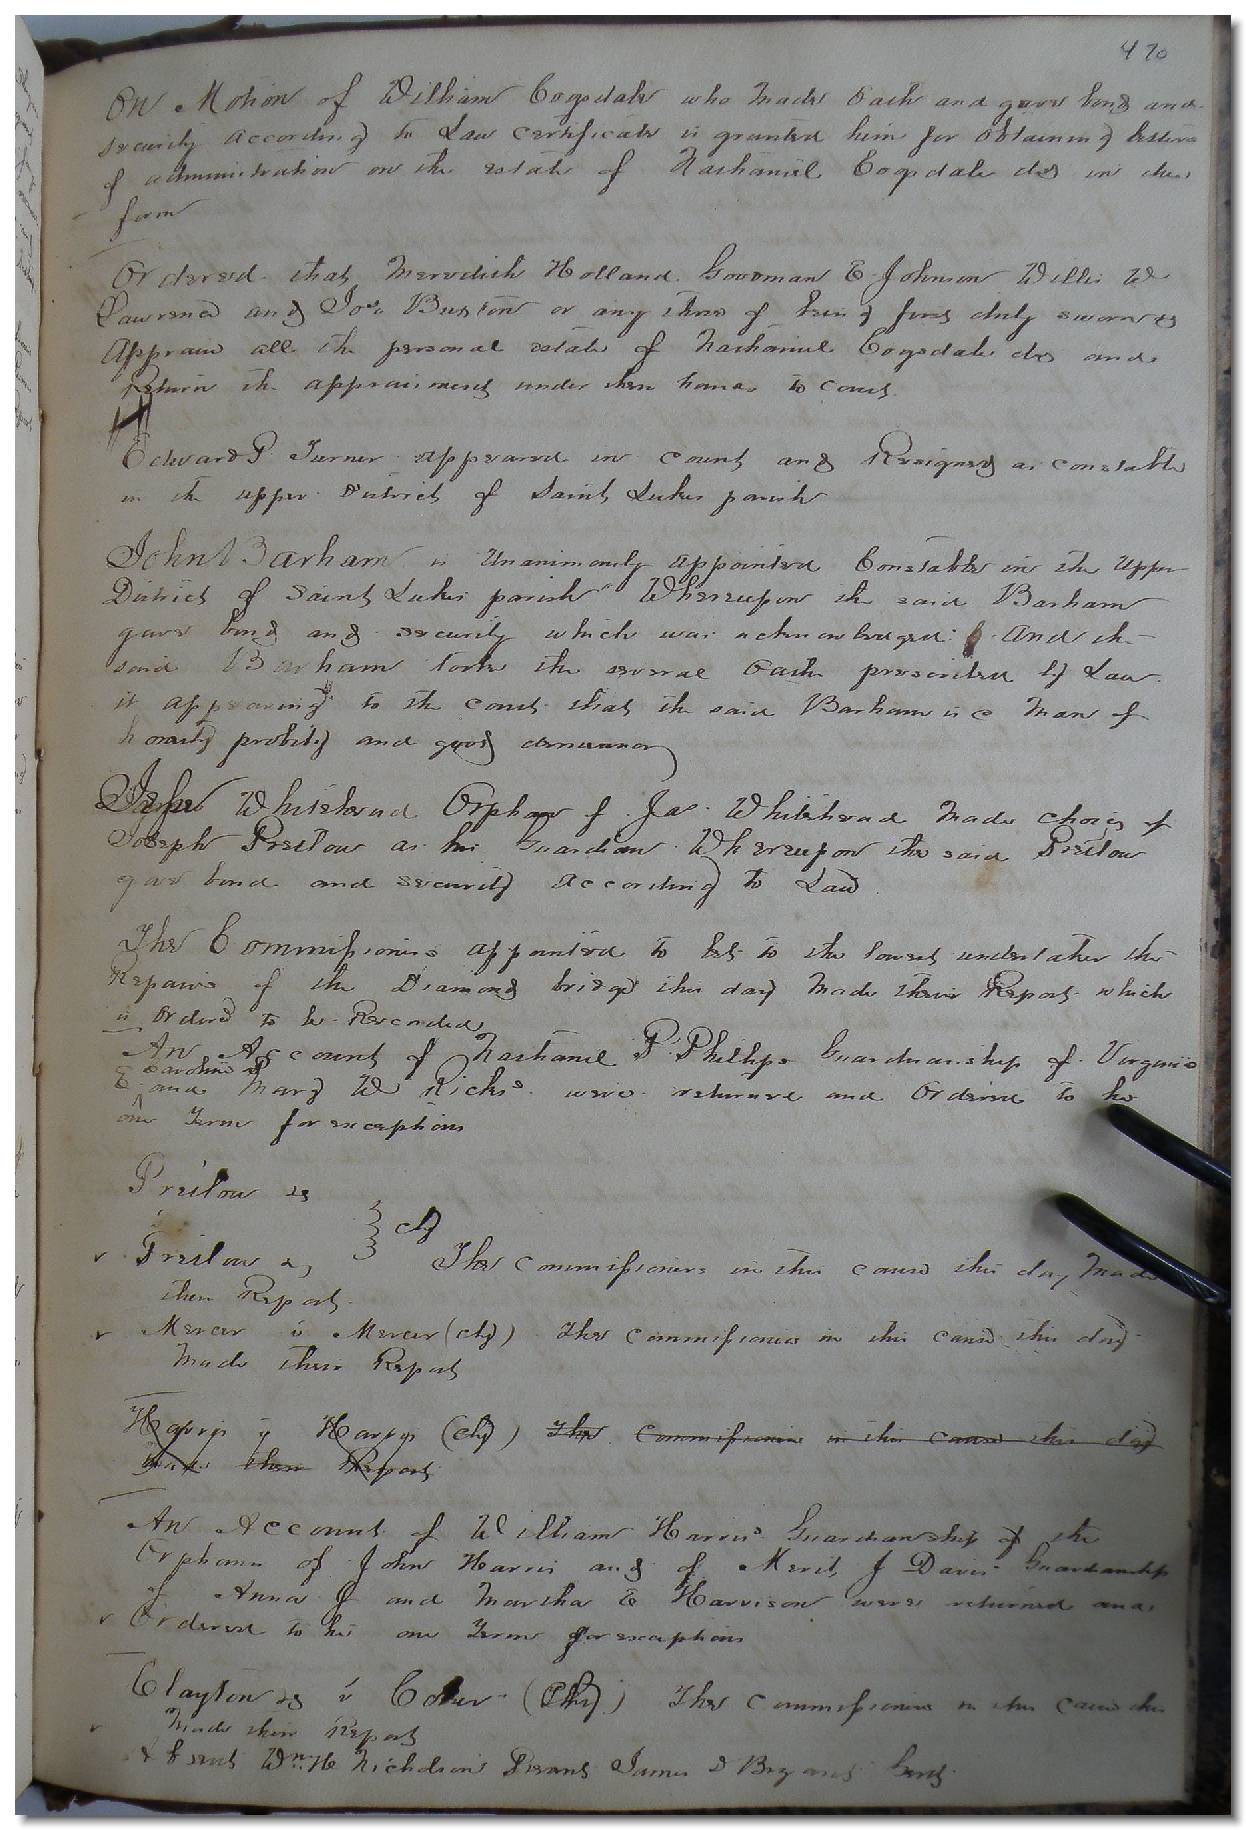 470
On Motion of William Cogsdale who made Oath and gave bond and
security according to Law certificate is granted him for obtaining letters
of administration on the estate of Nathaniel Cogsdale decd in due
form
Ordered that Meredith Holland Goodman E Johnson Willis W
Lawrence and Jos Buxton or any three of being first duly sworn to
Appraise all the personal estate of Nathaniel Cogsdale decd and
Return the appraisment under their hands to court
Edward P Turner appeared in court and Resigned as constable
in the upper District of Saint Lukes parish
John Barham is Unanimously appointed Constable in the Upper
District of Saint Lukes parish Whereupon the said Barham
gave bond and security which was acknowledged And the
said Barham took the several Oaths prescribed by Law
it appearing to the court that the said Barham is a Man of
honesty probity and good demeanor
Whitehead Orphan of Jas Whitehead made choice of
Joseph Pretlow as his Guardian Whereupon the said Pretlow
gave bond and security According to Law
The Commissioners appointed to let to the lowest undertaker the
Repairs of the Diamond bridge this day made their Report which
is Ordered to be Recorded
An Account of Nathaniel P Phillips Guardianship of Virginia
E Caroline and Mary W Ricks were returned and Ordered to lie
one Term for exceptions
Pretlow &
v
Pretlow & } chy The commissioners in this cause this day made
their Report
Mercer v Mercer (chy) The commissioners in this cause this day
Made their Report
Harris v Harris (chy) The Commissioners in this cause this day
made their Report
An Account of William Harris Guardianship of the
Orphans of John Harris and of Merit J Davis Guardianship
of Anna J and Martha E Harrison were returned and
Ordered to lie one Term for exceptions
Clayton & v (Chy) The commissioners in this cause this
Made their Report
Absent Wm H Nicholson Present James D Bryant Gent